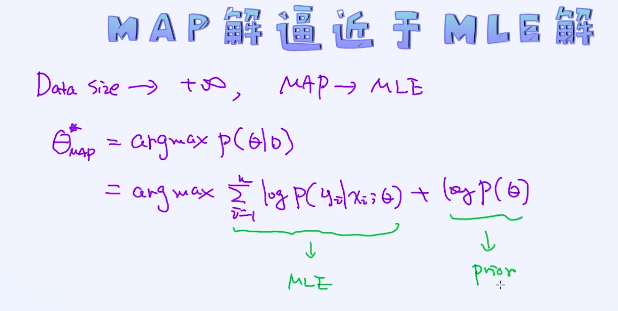 MAP解逼近于MLE解
Data size → +∞, MAP → MLE
θ*MAP = argmax p(θ|D)
= argmax ∑ⁿᵢ₌₁ log P(yᵢ|xᵢ;θ) + log P(θ)
↓ ↓
MLE prior